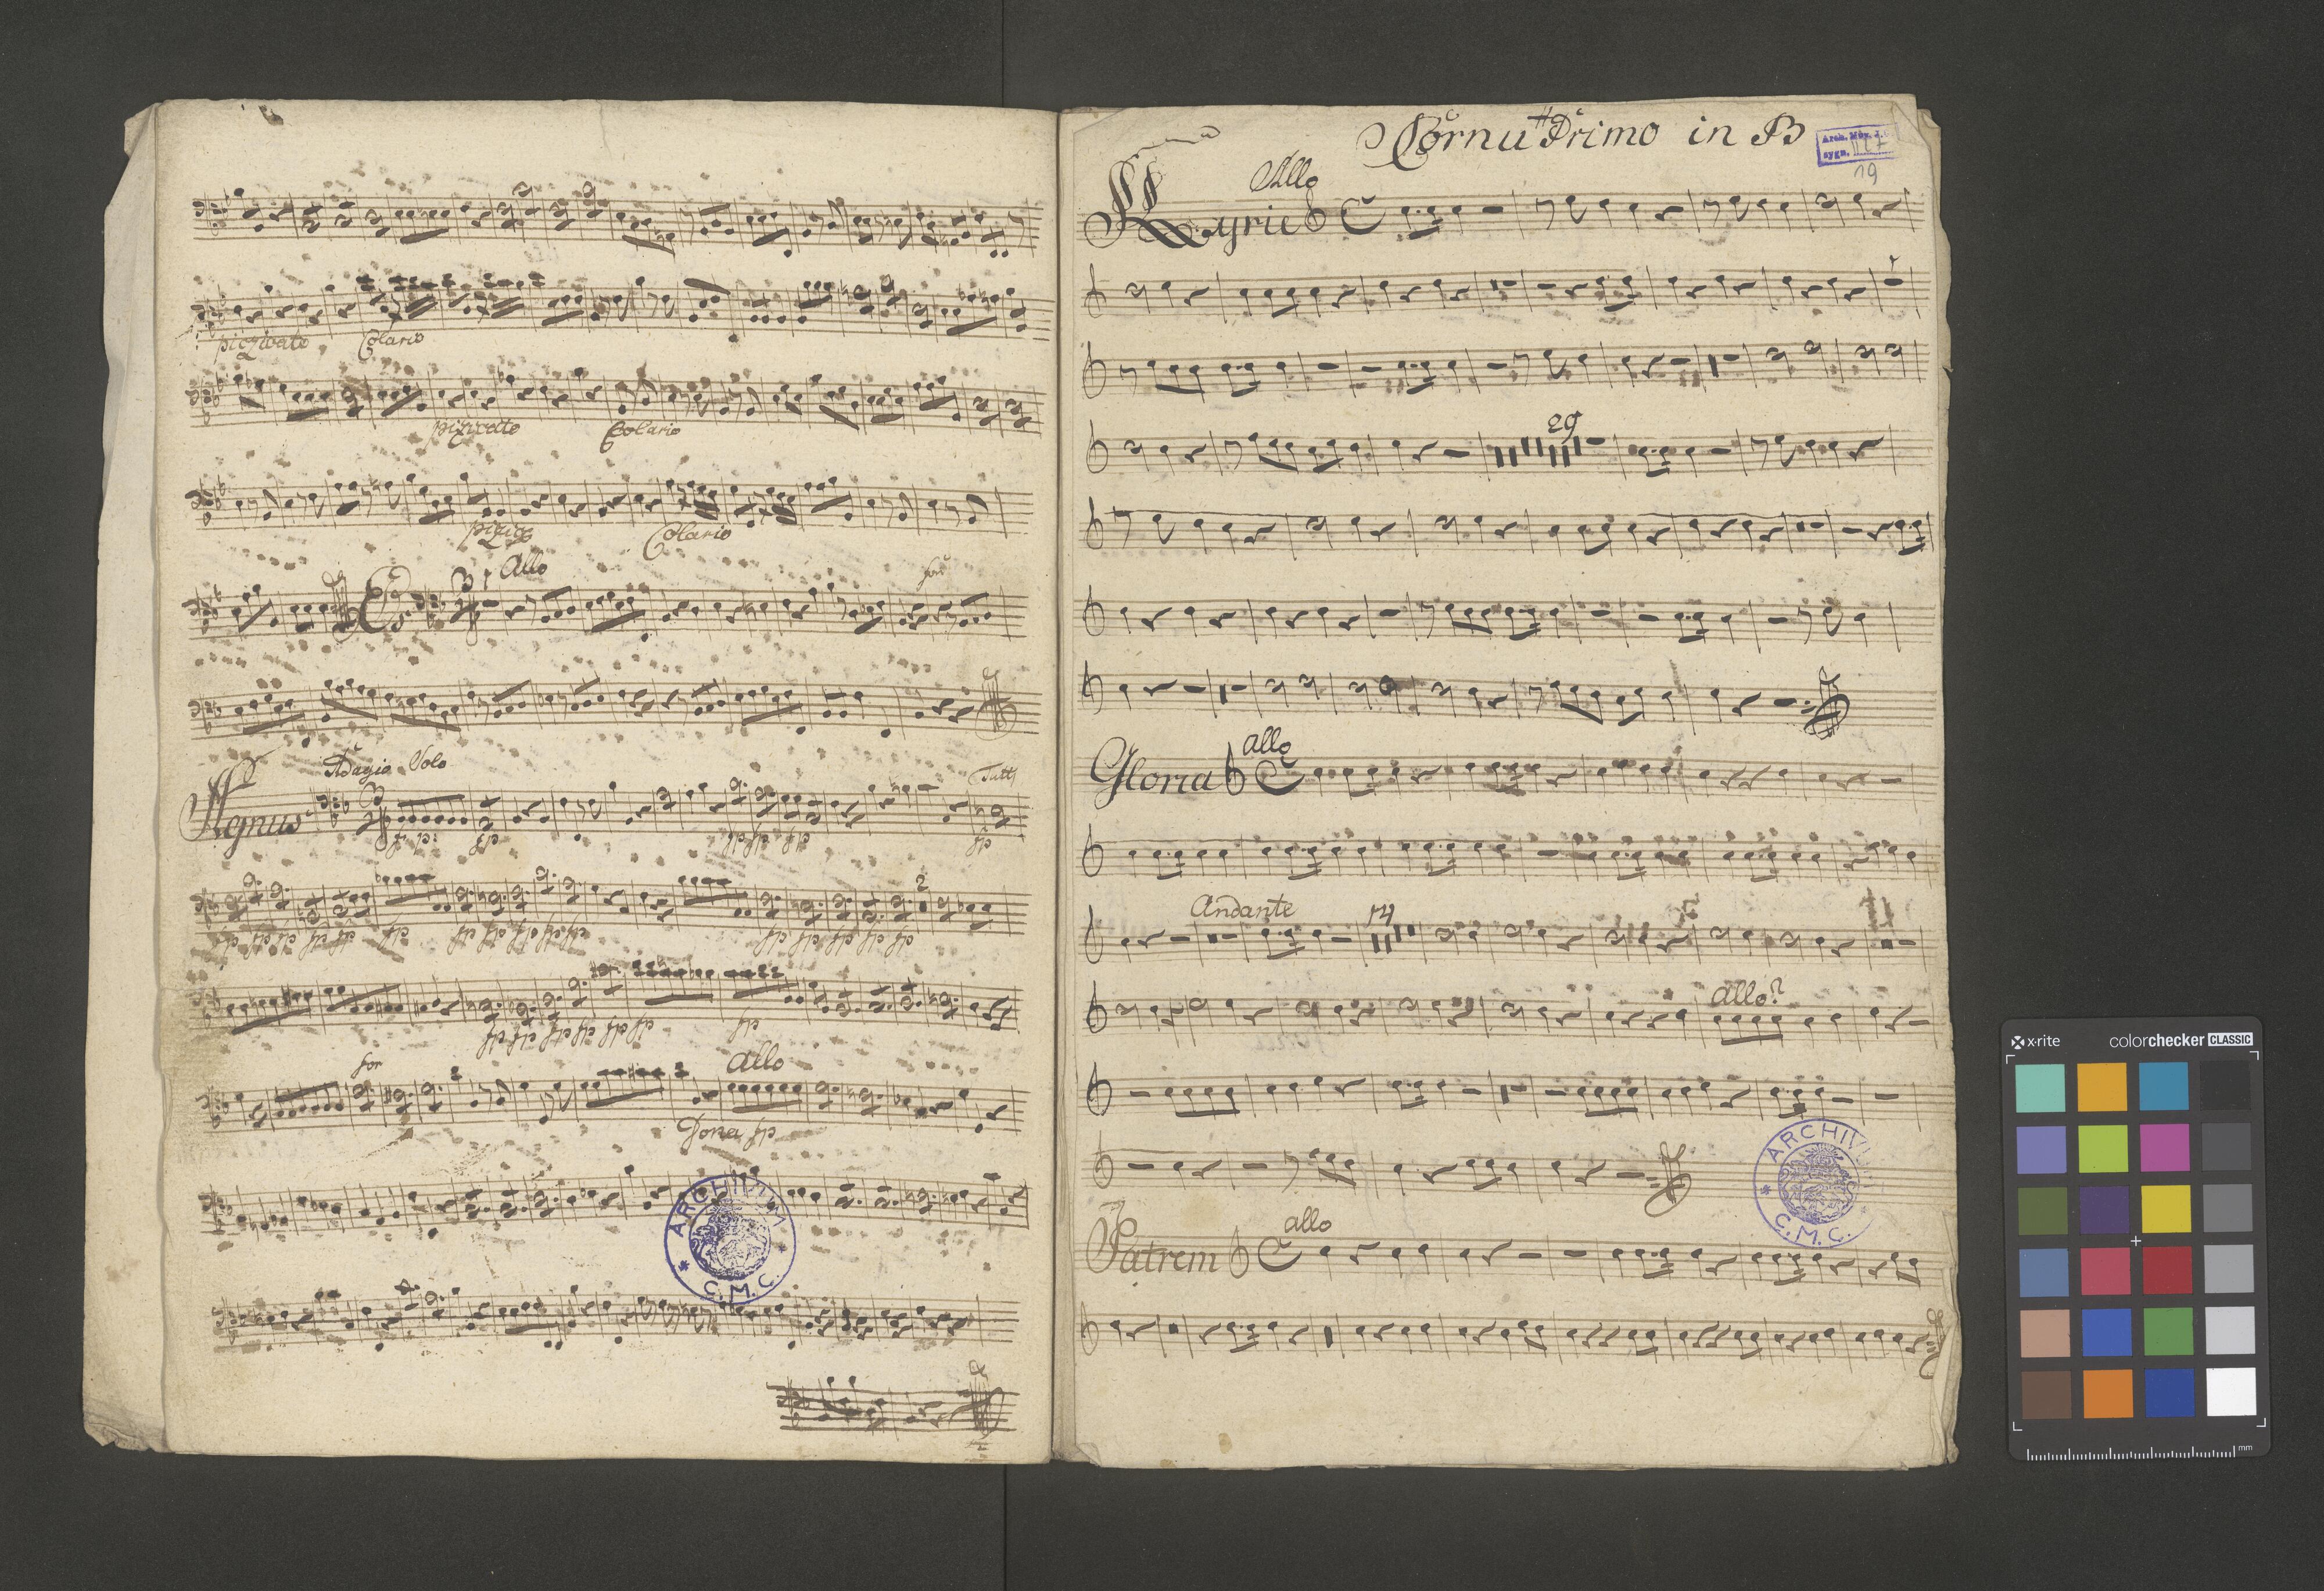 pizicato Colario
pizicato Colario
pizic Colario
Allo for
Adagio Solo Tutti
Agnus
fp fp fp fp fp
fp fp fp fp fp fp fp fp fp fp fp fp
2
fp fp fp fp fp fp fp
for Allo
Dona fp
ARCHIVUM
* C.M.C. *
Cornu Primo in B
Arch. Muz. J.
sygn. III
19
Allo
Kyrie
29
allo
Gloria
Andante 14
allo?
ARCHIVUM
* C.M.C.
allo
Patrem
x-rite colorchecker CLASSIC
mm